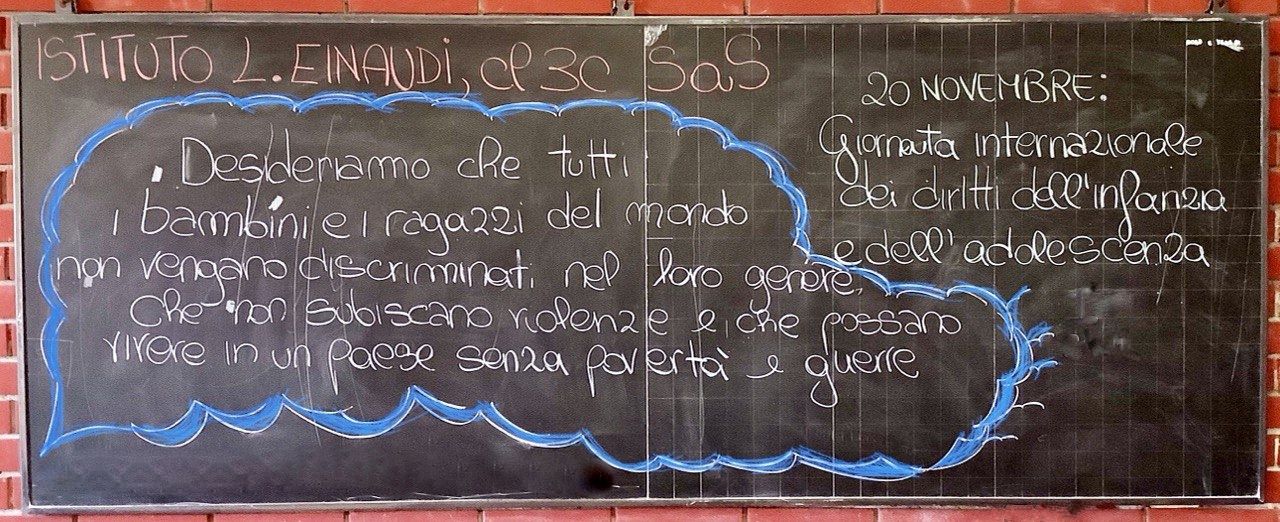 ISTITUTO L. EINAUDI, cl 3C SaS
Desideriamo che tutti
i bambini e i ragazzi del mondo
non vengano discriminati nel loro genere,
che non subiscano violenze e, che possano
vivere in un paese senza povertà e guerre
20 NOVEMBRE:
Giornata internazionale
dei diritti dell'infanzia
e dell'adolescenza